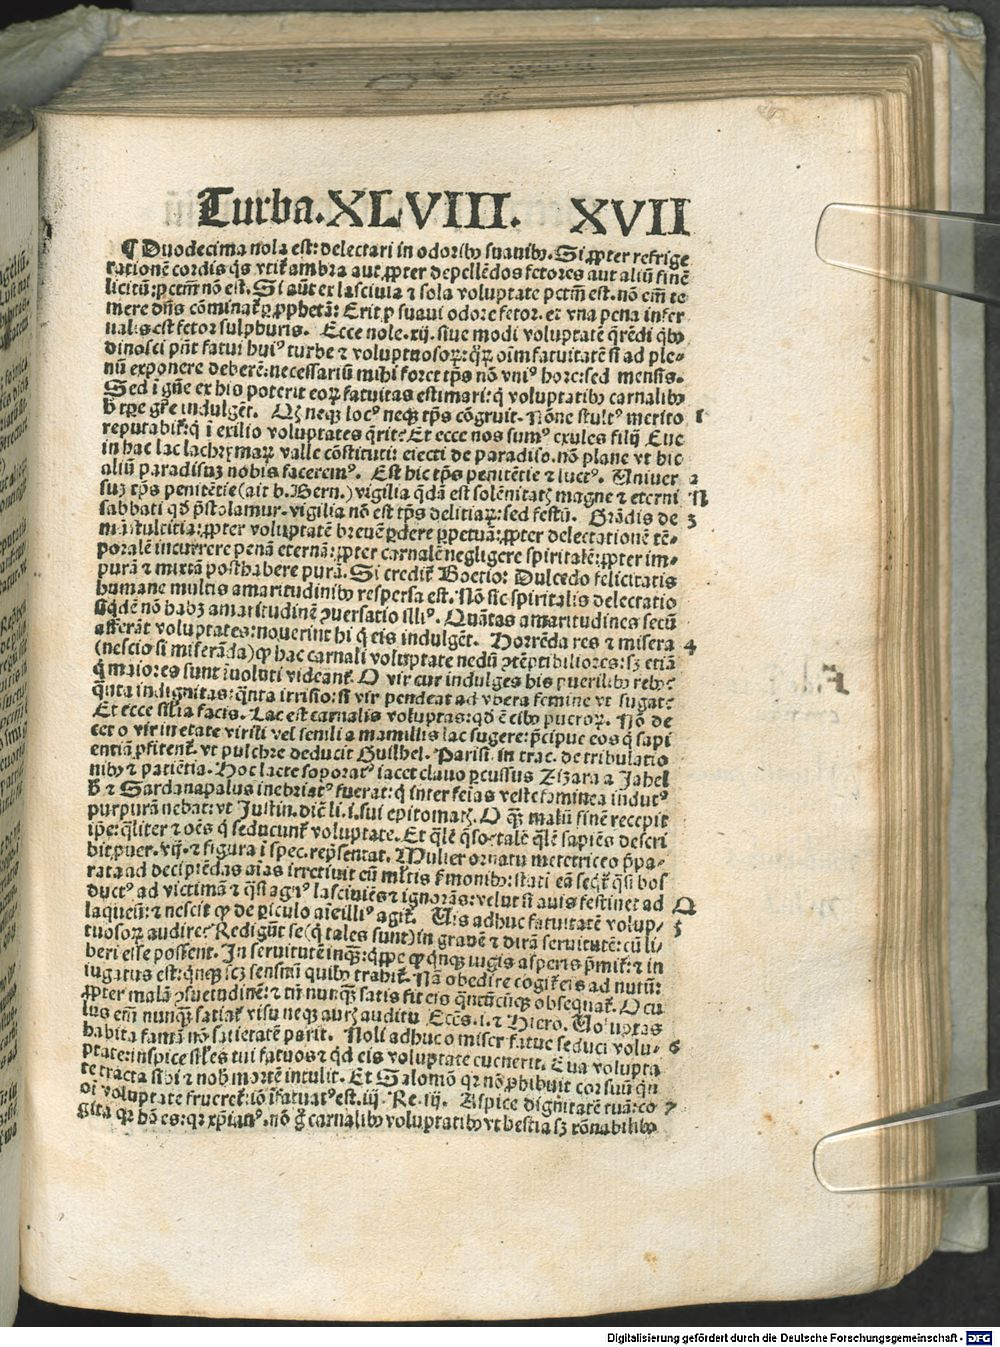 Turba. XLVIII. XVII
¶ Duodecima nola est: delectari in odoribꝰ suauibꝰ. Si ꝓpter refrige
rationē cordis q̄s vtit̄ ambra aut ꝓpter depellēdos fetores aut aliū finē
licitū: pctm̄ nō est. Si aūt ex lasciuia ⁊ sola voluptate pctm̄ est. nō em̄ te
mere dn̄s cōminat̄ ꝑ ꝓphetā: Erit ꝓ suaui odore fetor. et vna pena infer
nalis est fetor sulphuris. Ecce nole .xij. siue modi voluptatē q̄rēdi qͥbꝰ
dinosci pn̄t fatui huiꝰ turbe ⁊ voluptuosoꝝ: qͦꝝ oīm fatuitatē si ad ple⸗
nū exponere deberē: necessariū mihi foret tp̄s nō vniꝰ hore: sed mensis.
Sed ī gn̄e ex his poterit eoꝝ fatuitas estimari: q̄ voluptatibꝰ carnalibꝰ
h̄ tp̄re gr̄e indulgēt. Qꝫ neqꝫ locꝰ neqꝫ tp̄s cōgruit. Nōne stultꝰ merito 1
reputabit̄: q̄ ī exilio voluptates q̄rit? Et ecce nos sumꝰ exules filij Eue
in hac lachrymaꝝ valle cōstituti: eiecti de paradiso. nō plane vt hic
aliū paradisuꝫ nobis faceremꝰ. Est hic tp̄s penitētie ⁊ luctꝰ. Uniuer 2
suꝫ tp̄s penitētie (ait b. Bern.) vigilia q̄dā est solēnitatꝭ magne ⁊ eterni N
sabbati qd̄ p̄stolamur. vigilia nō est tp̄s delitiaꝝ: sed festū. Grādis de 3
mū stulcitia: ꝓpter voluptatē breuē ꝑdere ꝑpetuā: ꝓpter delectationē tē⸗
poralē incurrere penā eternā: ꝓpter carnalē negligere spiritalē: ꝓpter im⸗
purā ⁊ mixtā posthabere purā. Si credit̄ Boetio: Dulcedo felicitatis
humane multis amaritudinibꝰ respersa est. Nō sic spiritalis delectatio
siqͥdē nō habꝫ amaritudinē ꝯuersatio illiꝰ. Quātas amaritudines secū
afferāt voluptates: nouerint hi q̄ eis indulgēt. Horrēda res ⁊ misera 4
(nescio si miserāda) ꝙ hac carnali voluptate nedū ꝯtēptibiliores: sꝫ etiā
q̄ maiores sunt īuoluti videant̄. O vir cur indulges his puerilibꝰ rebꝰ?
q̄nta indignitas: q̄nta irrisio: si vir pendeat ad vbera femine vt sugat?
Et ecce silia facis. Lac est carnalis voluptas: qd̄ ē cibꝰ pueroꝝ. Nō de
cet o vir in etate virili vel senili a mamillis lac sugere: p̄cipue eos q̄ sapi
entiā ꝓfitent̄. vt pulchre deducit Guilhel. Parisi. in trac. de tribulatio
nibꝰ ⁊ patiētia. Hoc lacte soporatꝰ iacet clauo ꝑcussus Zizara a Jahel
h̄ ⁊ Sardanapalus inebriatꝰ fuerat: q̄ inter feīas veste feminea indutꝰ
purpurā nebat: vt Justin. dic̄ li. i. sui epitomatꝭ. O qꝫ malū finē recepit
ip̄e: qͣliter ⁊ oēs q̄ seducunt̄ voluptate. Et qͣlē
bit puer. vij. ⁊ figura ī spec. rep̄sentat. Mulier ornatu meretriceo p̄pa⸗
rata ad decipiēdas aīas irretiuit cū mltis ẜmonibꝰ: stati eā seqͥt̄ qͣsi bos
ductꝰ ad victimā ⁊ qͣsi agnꝰ lasciuiēs ⁊ ignorās: velut si auis festinet ad
laqueū: ⁊ nescit ꝙ de ꝑiculo aīe illiꝰ agit̄. Uis adhuc fatuitatē volup⸗ O 5
tuosoꝝ audire? Redigūt se (q̄ tales sunt) in grauē ⁊ dirā seruitutē: cū li⸗
beri esse possent. In seruitutē inqꝫ: qͥppe ꝙ qͥnqꝫ iugis asperis p̄mit̄: ⁊ in
iugatus est: qͥnqꝫ scꝫ sensuū quibꝰ trahit̄. Nā obedire cogit̄ eis ad nutū:
ꝓpter malā ꝯsuetudinē: ⁊ tn̄ nunqꝫ satis fit eis q̄ntūcūqꝫ obsequat̄. Ocu
lus em̄ nunqꝫ satiat̄ visu neqꝫ aurꝭ auditu. Ecēs. i. ⁊ Hiero. Uoluptas
habita famā nō satietatē parit. Noli adhuc o miser fatue seduci volu⸗ 6
ptate: inspice siľes tui fatuos ⁊ qͥd eis voluptate euenerit. Eua volupta
te tracta sibi ⁊ nob̄ mortē intulit. Et Salomō qr nō ꝓhibuit cor suū qn̄
oī voluptate frueret̄: iō īfatuatꝰ est. iij. Re. iij. Aspice dignitatē tuā: co 7
gita qr hō es: qr xp̄ianꝰ. nō g̊ carnalibꝰ voluptatibꝰ vt bestia sꝫ rōnabilibꝰ
Digitalisierung gefördert durch die Deutsche Forschungsgemeinschaft - DFG